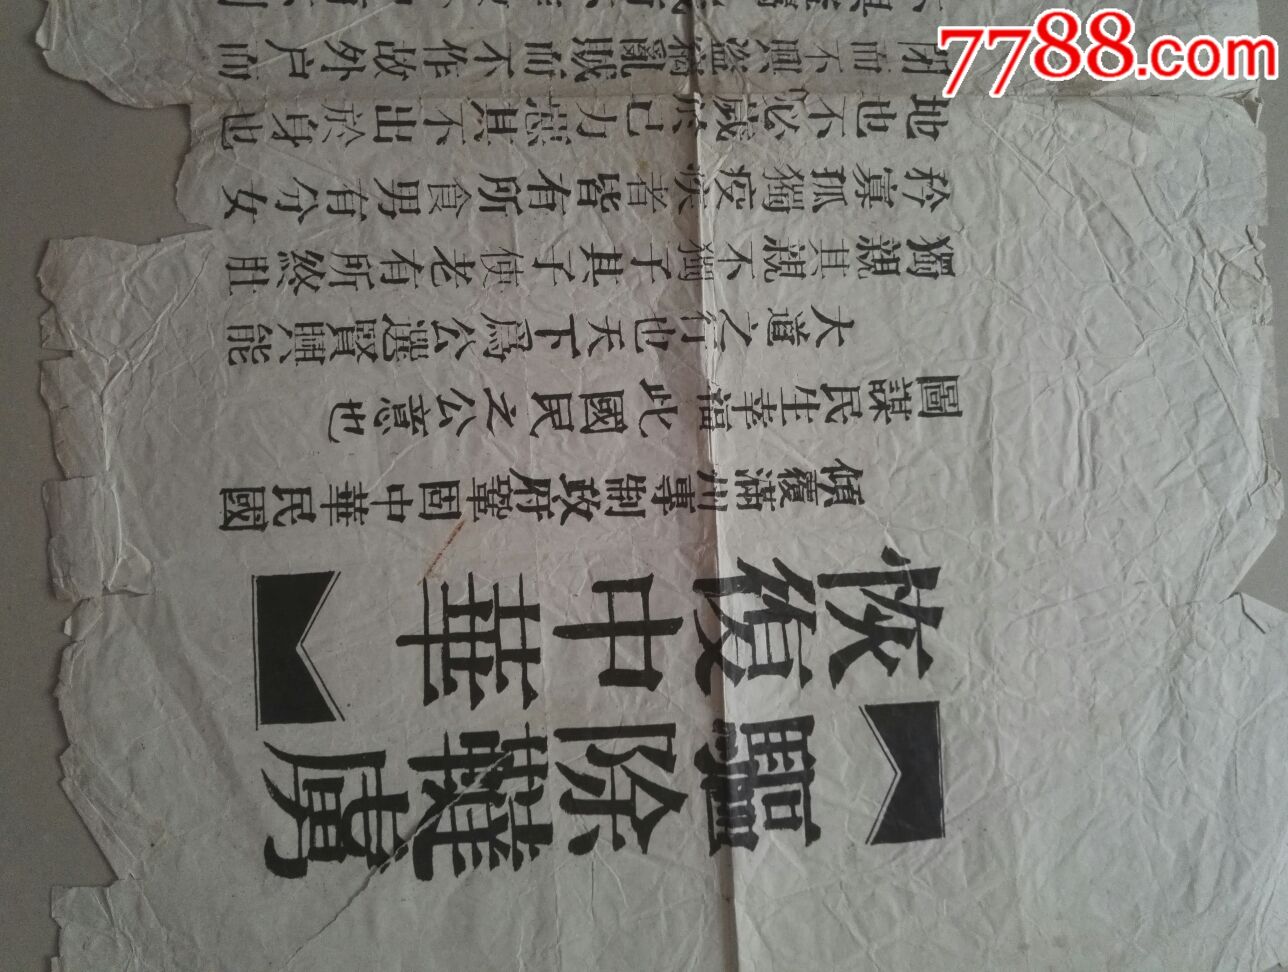 7788.com
驅除韃虜
恢復中華
傾覆滿洲專制政府鞏固中華民國
圖謀民生幸福此國民之公意也
大道之行也天下爲公選賢與能
獨親其親不獨子其子使老有所終壯
矜寡孤獨疫疾者皆有所食男有分女
地也不必藏於己力惡其不出於身也
閉而不興盜竊亂賊而不作故外户而